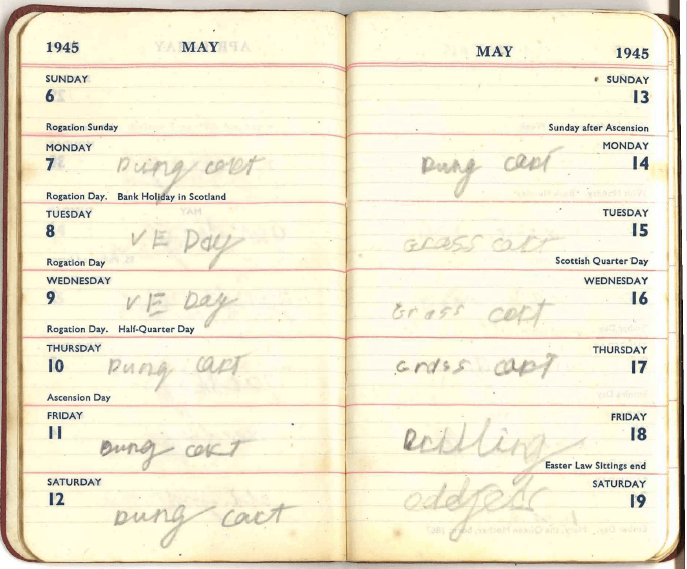 1945 MAY
SUNDAY
6
Rogation Sunday
MONDAY
7 Dung cart
Rogation Day. Bank Holiday in Scotland
TUESDAY
8 VE Day
Rogation Day
WEDNESDAY
9 VE Day
Rogation Day. Half-Quarter Day
THURSDAY
10 Dung cart
Ascension Day
FRIDAY
11 Dung cart
SATURDAY
12 Dung cart
MAY 1945
SUNDAY
13
Sunday after Ascension
MONDAY
Dung cart 14
TUESDAY
15
Grass cart
Scottish Quarter Day
WEDNESDAY
16
Grass cart
THURSDAY
Grass cart 17
FRIDAY
18
Drilling
Easter Law Sittings end
SATURDAY
19